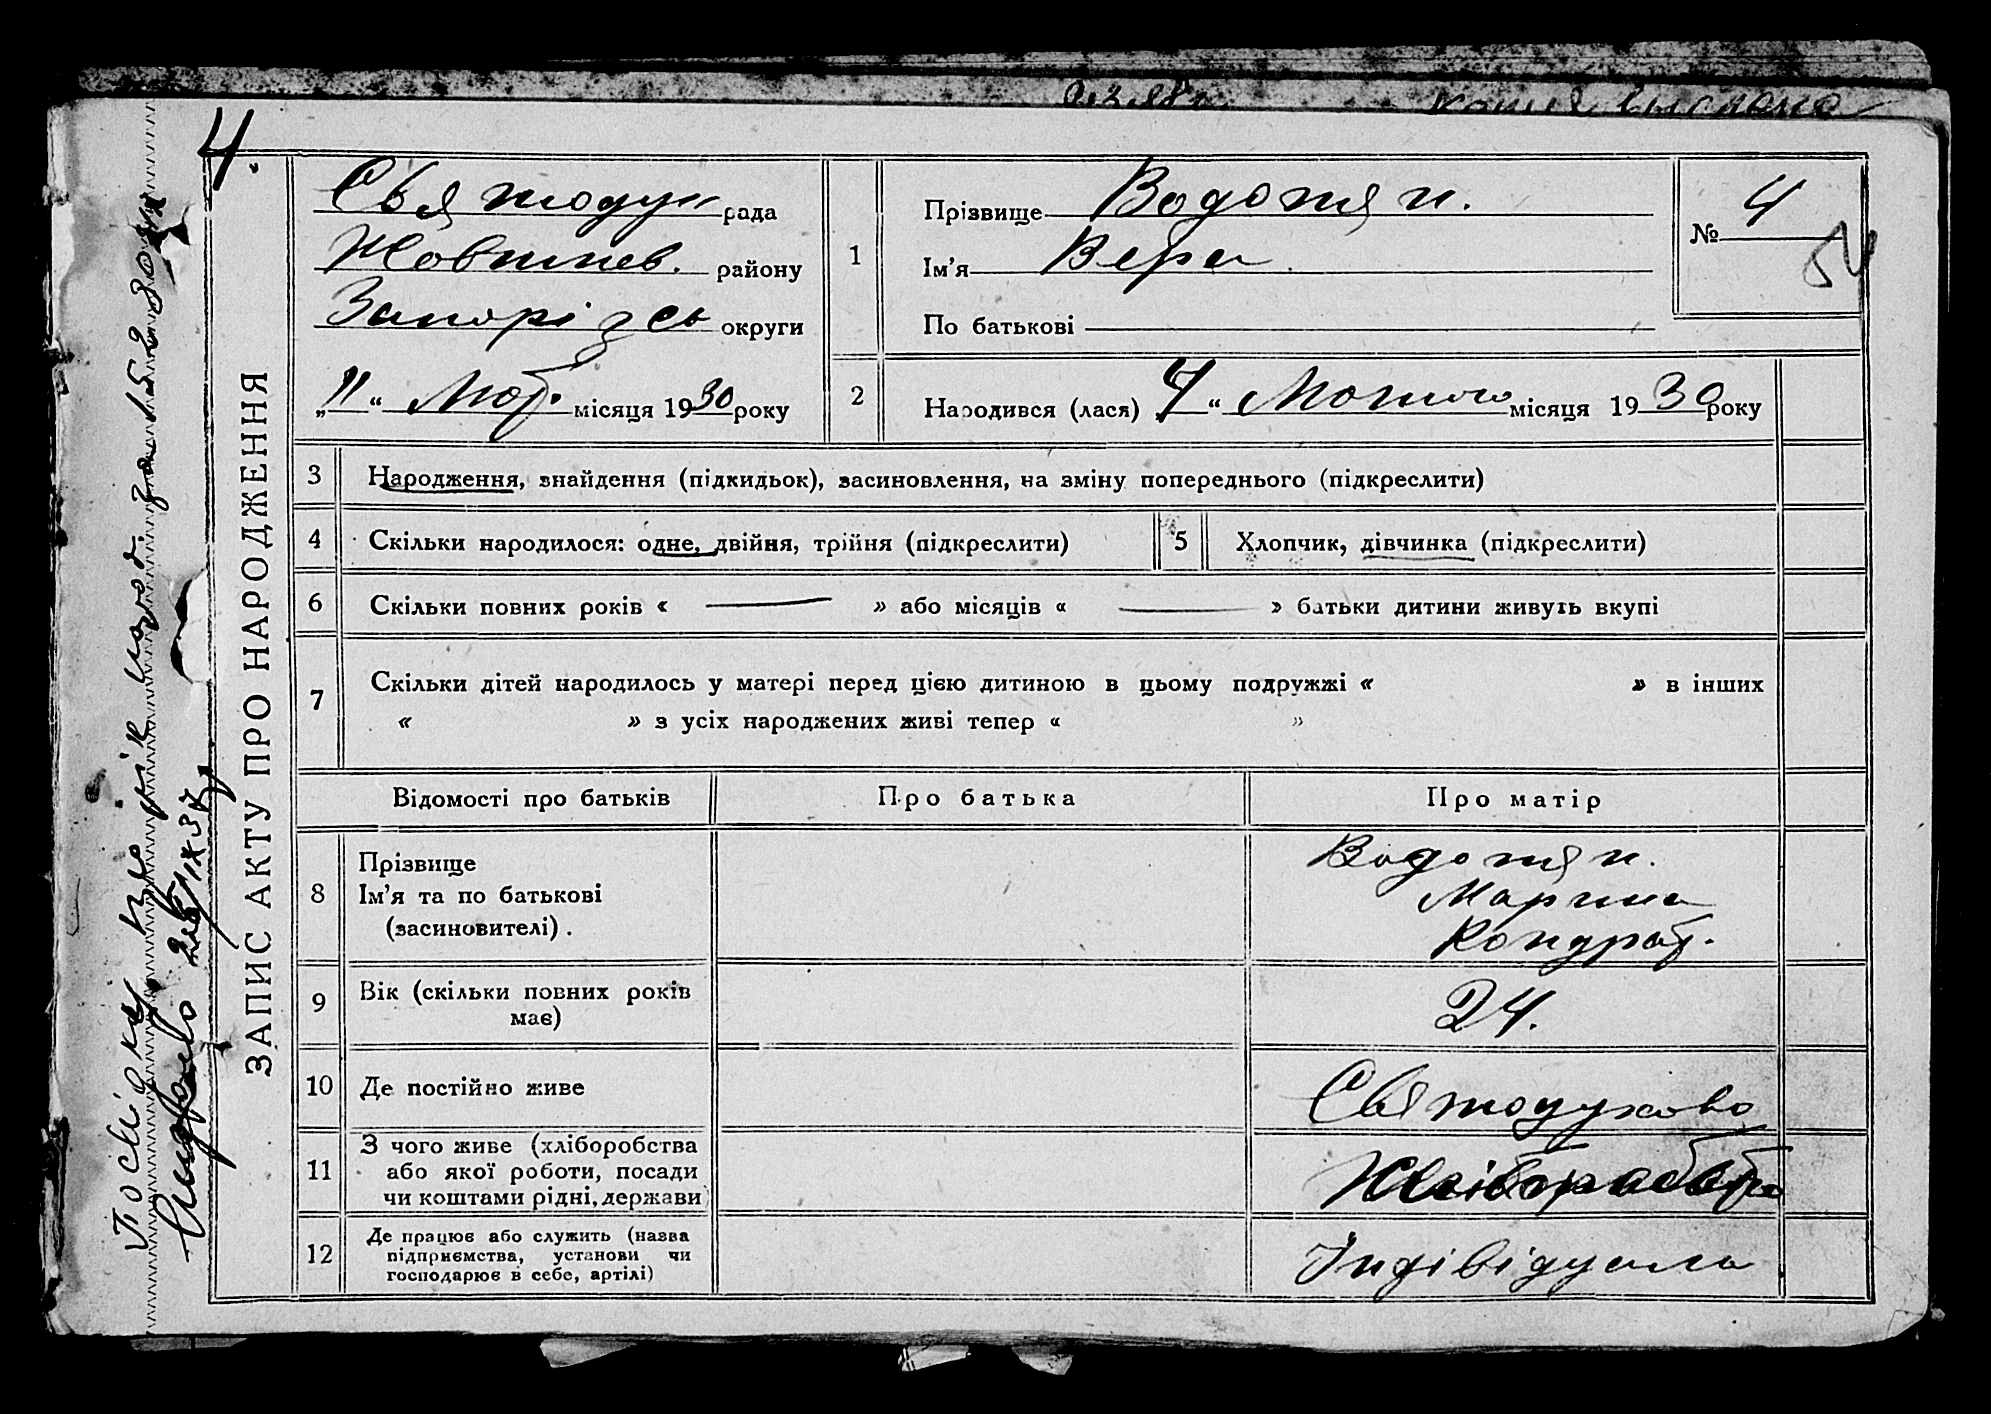 копия выслана
4.
Святодух рада
Жовтнев. району
Запорізь округи
„11“ Лют. місяця 1930 року
1
Прізвище Водотяп.
Ім'я Вера
По батькові
№ 4
54
2
Народився (лася) „4“ Лютого місяця 1930 року
ЗАПИС АКТУ ПРО НАРОДЖЕННЯ
3 Народження, знайдення (підкидьок), засиновлення, на зміну попереднього (підкреслити)
4 Скільки народилося: одне, двійня, трійня (підкреслити)
5 Хлопчик, дівчинка (підкреслити)
6 Скільки повних років « — » або місяців « — » батьки дитини живуть вкупі
7 Скільки дітей народилось у матері перед цією дитиною в цьому подружжі « » в інших
« » з усіх народжених живі тепер « »
Відомості про батьків
Про батька
Про матір
8 Прізвище
Ім'я та по батькові
(засиновителі).
Водотяп.
Марина
Кондрат.
9 Вік (скільки повних років
має)
24.
10 Де постійно живе
Святодухово
11 З чого живе (хліборобства
або якої роботи, посади
чи коштами рідні, держави)
Хліборобство
12 Де працює або служить (назва
підприємства, установи чи
господарює в себе, артілі)
Індівідуально